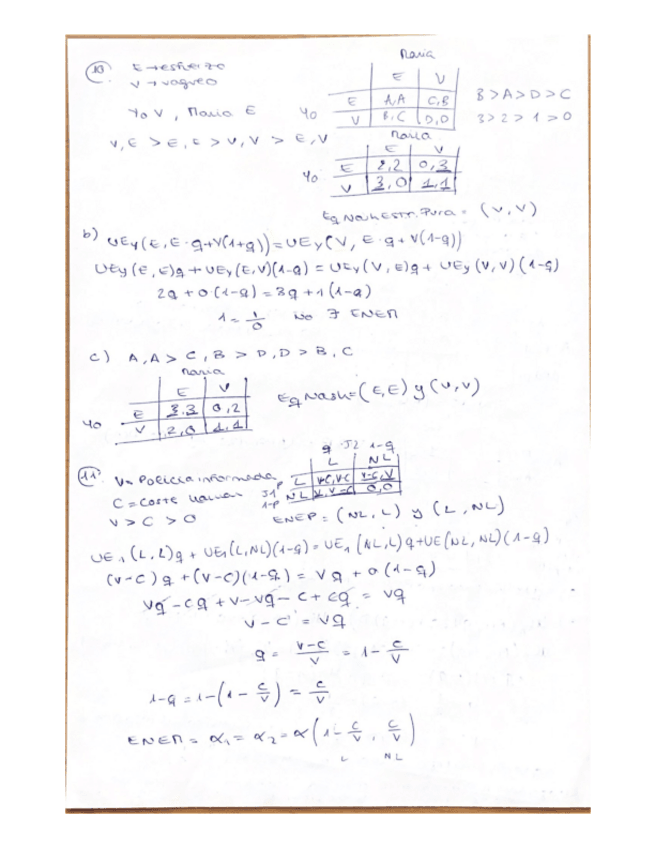 10 E → esfuerzo
V → vagueo
Yo V, Maria E
V,E > E,E > V,V > E,V
Maria
E V
Yo E A,A C,B
V B,C D,D
B > A > D > C
3 > 2 > 1 > 0
Maria
E V
Yo E 2,2 0,3
V 3,0 1,1
Eq Nash Estr. Pura = (V,V)
b) UEy(E, E·q+V(1+q)) = UEy(V, E·q+V(1-q))
UEy(E,E)q + UEy(E,V)(1-q) = UEy(V,E)q + UEy(V,V)(1-q)
2q + 0(1-q) = 3q + 1(1-q)
1 = 1/0 no ∃ ENEM
c) A,A > C,B > D,D > B,C
Maria
E V
Yo E 3,3 0,2
V 2,0 1,1
Eq Nash = (E,E) y (V,V)
11. V = Policia informada
C = Coste llamar
V > C > 0
q J2 1-q
L NL
J1 p L V-C,V-C V-C,V
1-p NL V,V-C 0,0
ENEP = (NL,L) y (L,NL)
UE1(L,L)q + UE1(L,NL)(1-q) = UE1(NL,L)q + UE(NL,NL)(1-q)
(V-C)q + (V-C)(1-q) = Vq + 0(1-q)
Vq - Cq + V - Vq - C + Cq = Vq
V - C = Vq
q = V-C/V = 1 - C/V
1-q = 1-(1 - C/V) = C/V
ENEM = α1 = α2 = α(1 - C/V, C/V)
L NL